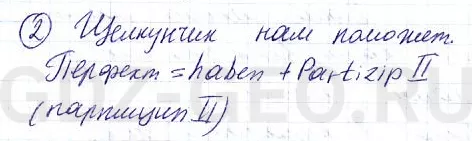 2 Щелкунчик нам поможет.
Перфект = haben + Partizip II
(партицип II)